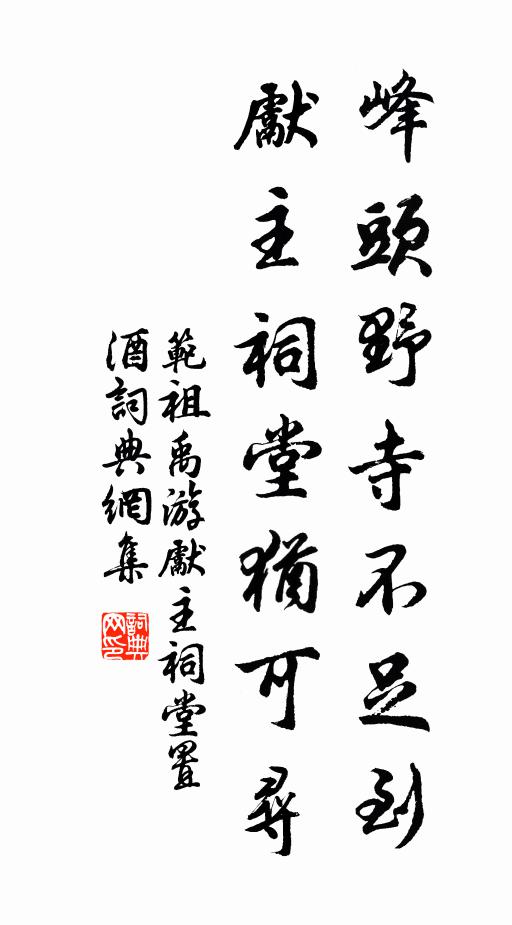 峰頭野寺不足到
獻主祠堂猶可尋
範祖禹游獻主祠堂置
酒詞典網集
詞典
网印